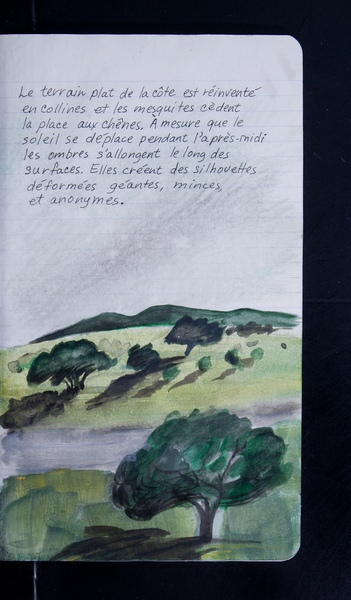 Le terrain plat de la côte est réinventé
en collines et les mesquites cèdent
la place aux chênes. À mesure que le
soleil se déplace pendant l'après-midi
les ombres s'allongent le long des
surfaces. Elles créent des silhouettes
déformées géantes, minces,
et anonymes.